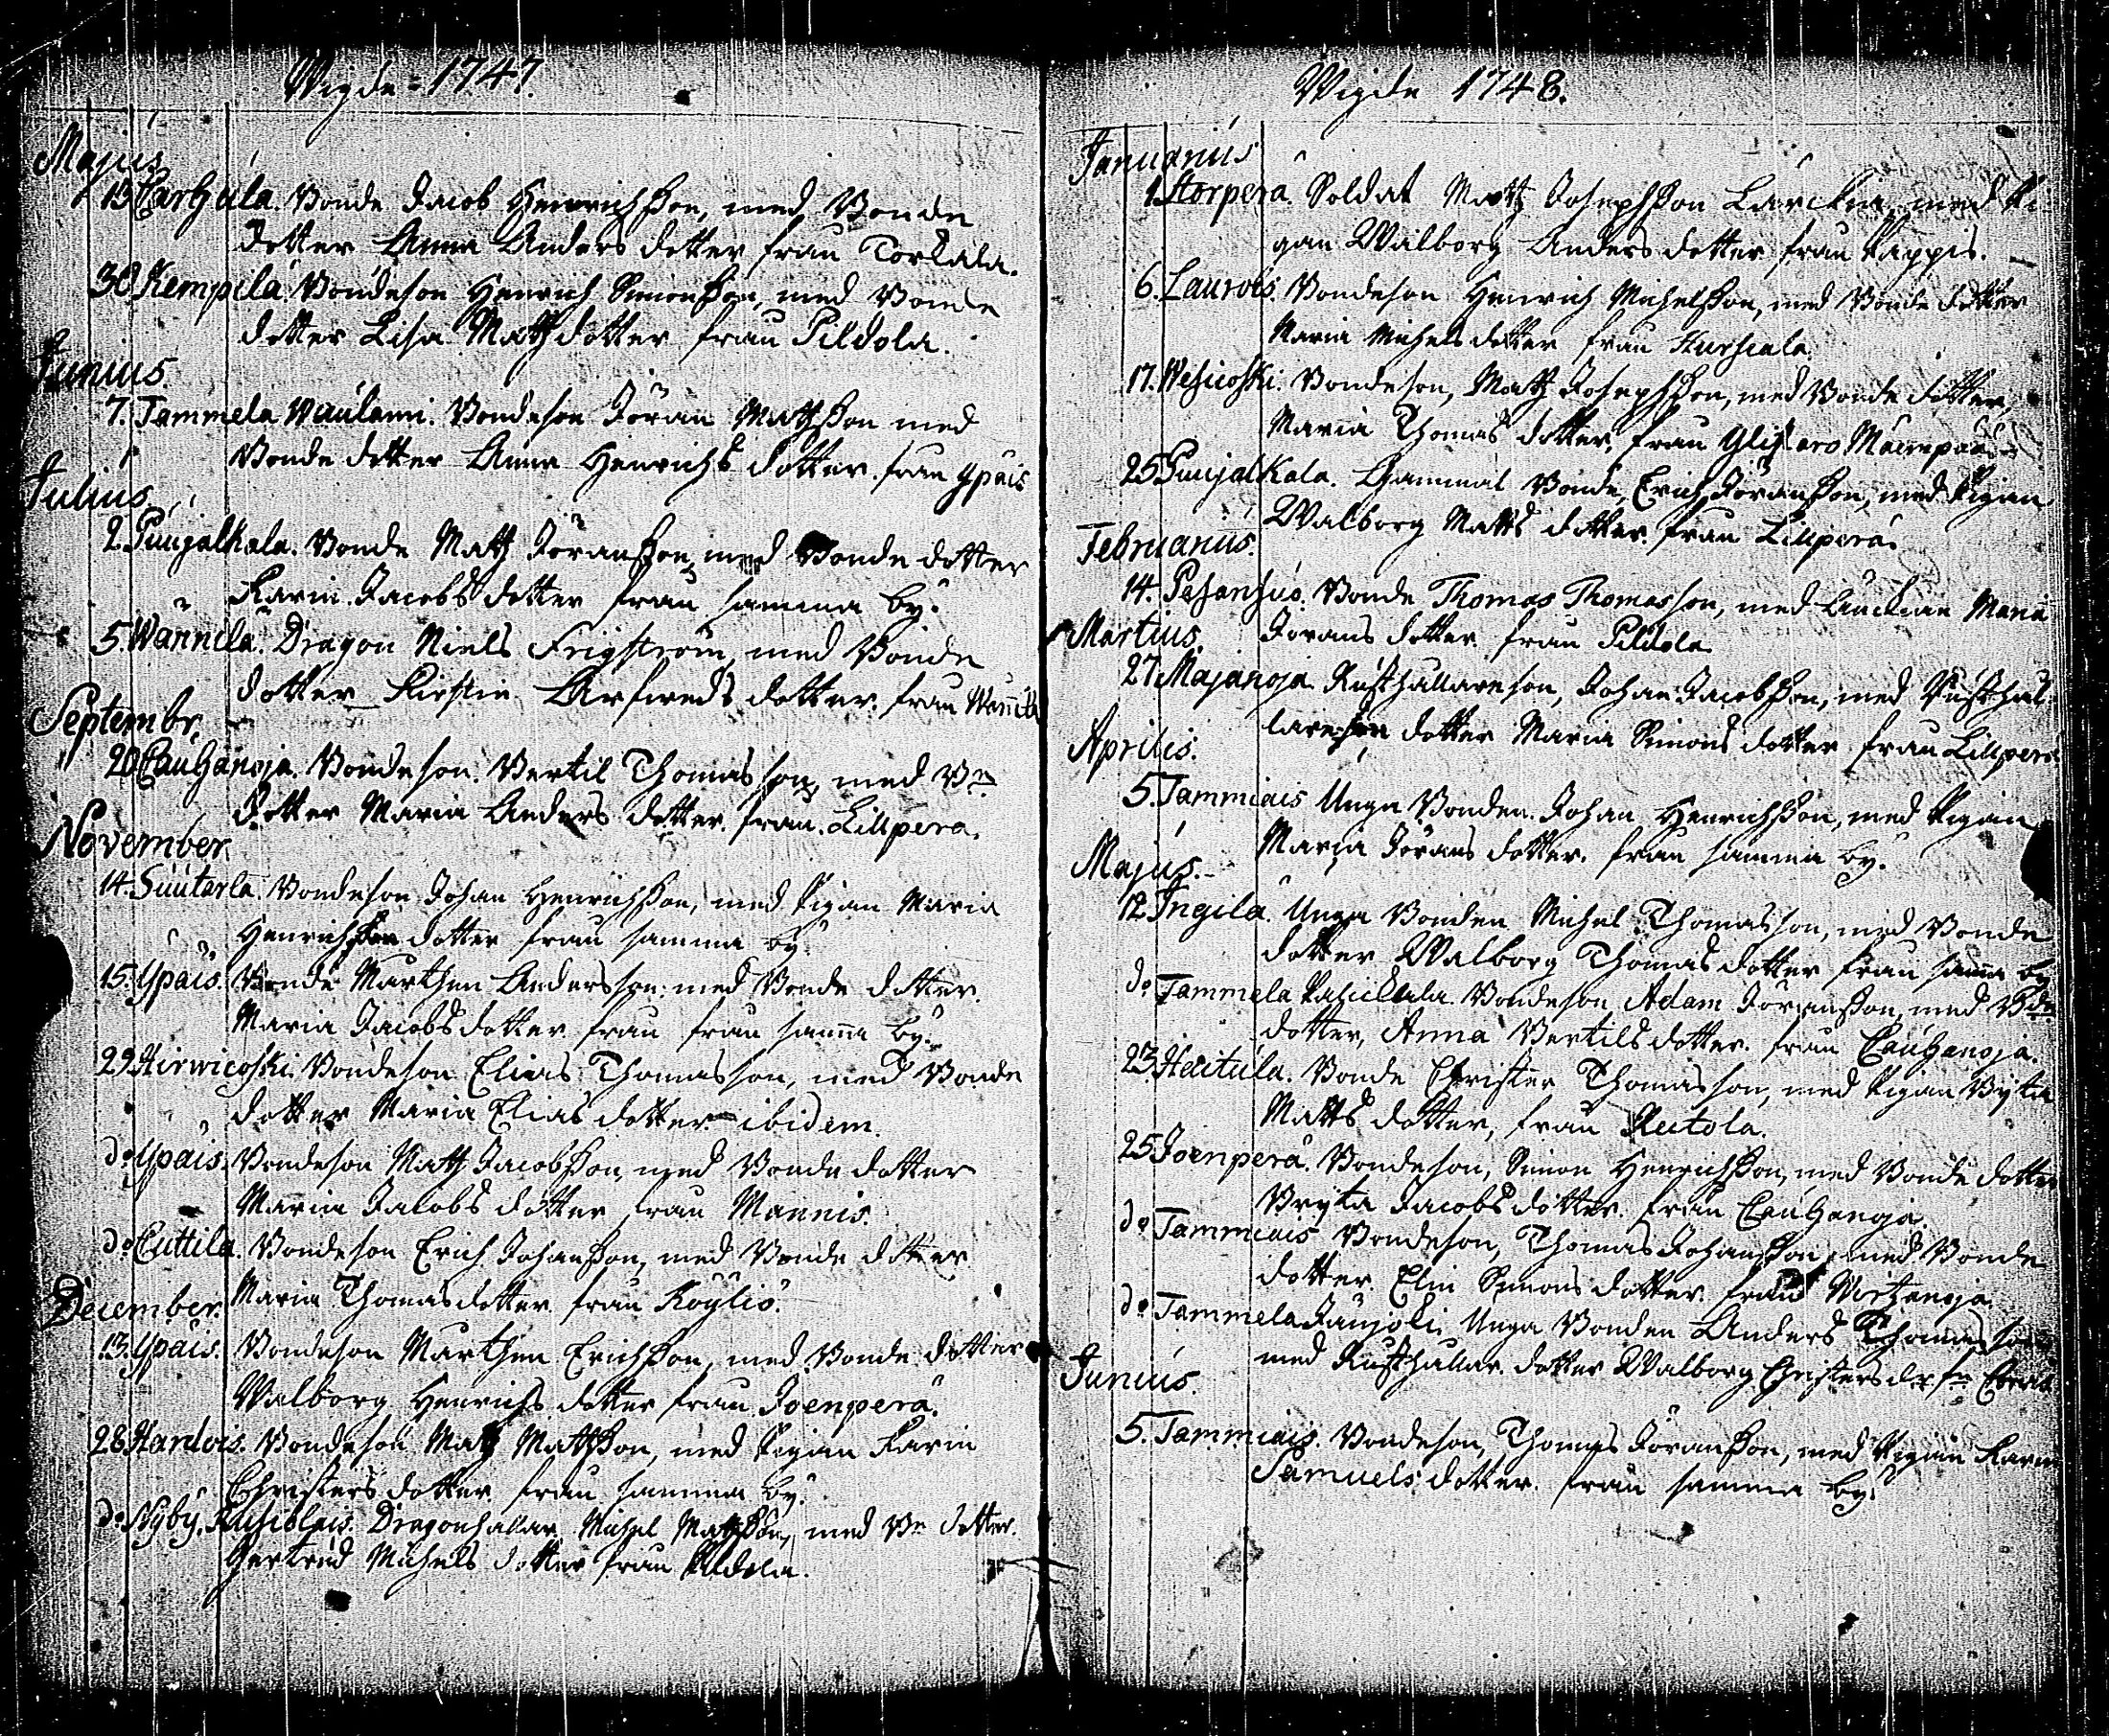 Wigde 1747.
Majus
15 Carhula. Bonde Jacob Henrichsson, med Bonde
dotter Anna Anders dotter frau Torkala.
30 Kempila Bondeson Henrich Simonsson, med Bonde
dotter Lisa Matts dotter frau Pildola.
Junius
7. Tammela Waulami. Bondeson Jöran Mattsson med
Bonde dotter Anna Henrichs dotter frau Ypäis
Julius
2. Puujalkala. Bonde Matts Jöransson, med Bonde dotter
Karin Jacobs dotter frau samma by.
5. Wannila. Dragon Niels Frigström, med Bonde
dotter Kirstin Arfweds dotter. frau Wannila
Septembr.
20 Cauhanoja. Bondeson Bertil Thomasson, med Bde
dotter Maria Anders dotter. frau Lillperä.
November
14. Suutarla. Bondeson Johan Henrichsson, med Pigan Maria
Henrichs dotter frau samma by
15. Ypäis. Bonde Marthen Andersson med Bonde dotter.
Maria Jacobs dotter frau frau samma by.
29 Hirwicoski. Bondeson Elias Thomasson, med Bonde
dotter Maria Elias dotter ibidem.
do Ypäis. Bondeson Matts Jacobsson, med Bonde dotter
Maria Jacobs dotter frau Mannis.
do Cuttila. Bondeson Erich Johansson, med Bonde dotter
Maria Thomas dotter frau Köyliö.
December.
13. Ypäis. Bondeson Marthen Erichsson, med Bonde dotter
Walborg Henrichs dotter frau Joenperä.
28 Hardois. Bondeson Matts Mattsson, med Pigan Karin
Christers dotter frau samma by.
do Nyby, Dragonhallar. Michel Mattsson, med Bde dotter.
Gertrud Michels dotter frau
Wigde 1748.
Januarius
1. Horperä. Soldat Matts Josephsson Larckia, med Pi-
gan Walborg Anders dotter frau Pappis.
6. Laurois. Bondeson Henrich Michelsson, med Bonde dotter
Maria Michels dotter frau Hurskala.
17. Wesicoski. Bondeson, Matts Josephsson, med Bonde dotter,
Maria Thomas dotter, frau
25 Puujalkala. Gammal Bonde, Erich Jöransson, med Pigan
Walborg Matts dotter frau Lillperä.
Februarius.
14. Bonde Thomas Thomasson, med Änckian Maria
Jörans dotter frau Pildola
Martius.
27. Majanoja Rusthallareson, Johan Jacobsson, med Rusthal-
lare dotter Maria Simons dotter frau Lillperä
Aprilis.
5. Tammiais Unga Bonden Johan Henrichsson, med Pigan
Maria Jörans dotter. frau samma by.
Majus.
12. Ingila. Unga Bonden Michel Thomasson, med Bonde
dotter Walborg Thomas dotter frau samma by
do Tammela Bondeson Adam Jöransson, med Bde
dotter, Anna Bertils dotter. frau Cauhanoja.
23. Heitula. Bonde Christer Thomasson, med Pigan Bryta
Matts dotter, frau Rutola.
25 Joenperä. Bondeson, Simon Henrichsson, med Bonde dotter
Bryta Jacobs dotter. frau Cauhanoja.
do Tammiais Bondeson, Thomas Johansson med Bonde
dotter. Elin Simons dotter. frau Wirtzanoja
do Tammela Jaujoki. Unga Bonden Anders Thomasson
med Rusthallar. dotter Walborg Christers
Junius.
5. Tammiais. Bondeson, Thomas Jöransson, med Pigan Karin
Samuels dotter. frau samma by.